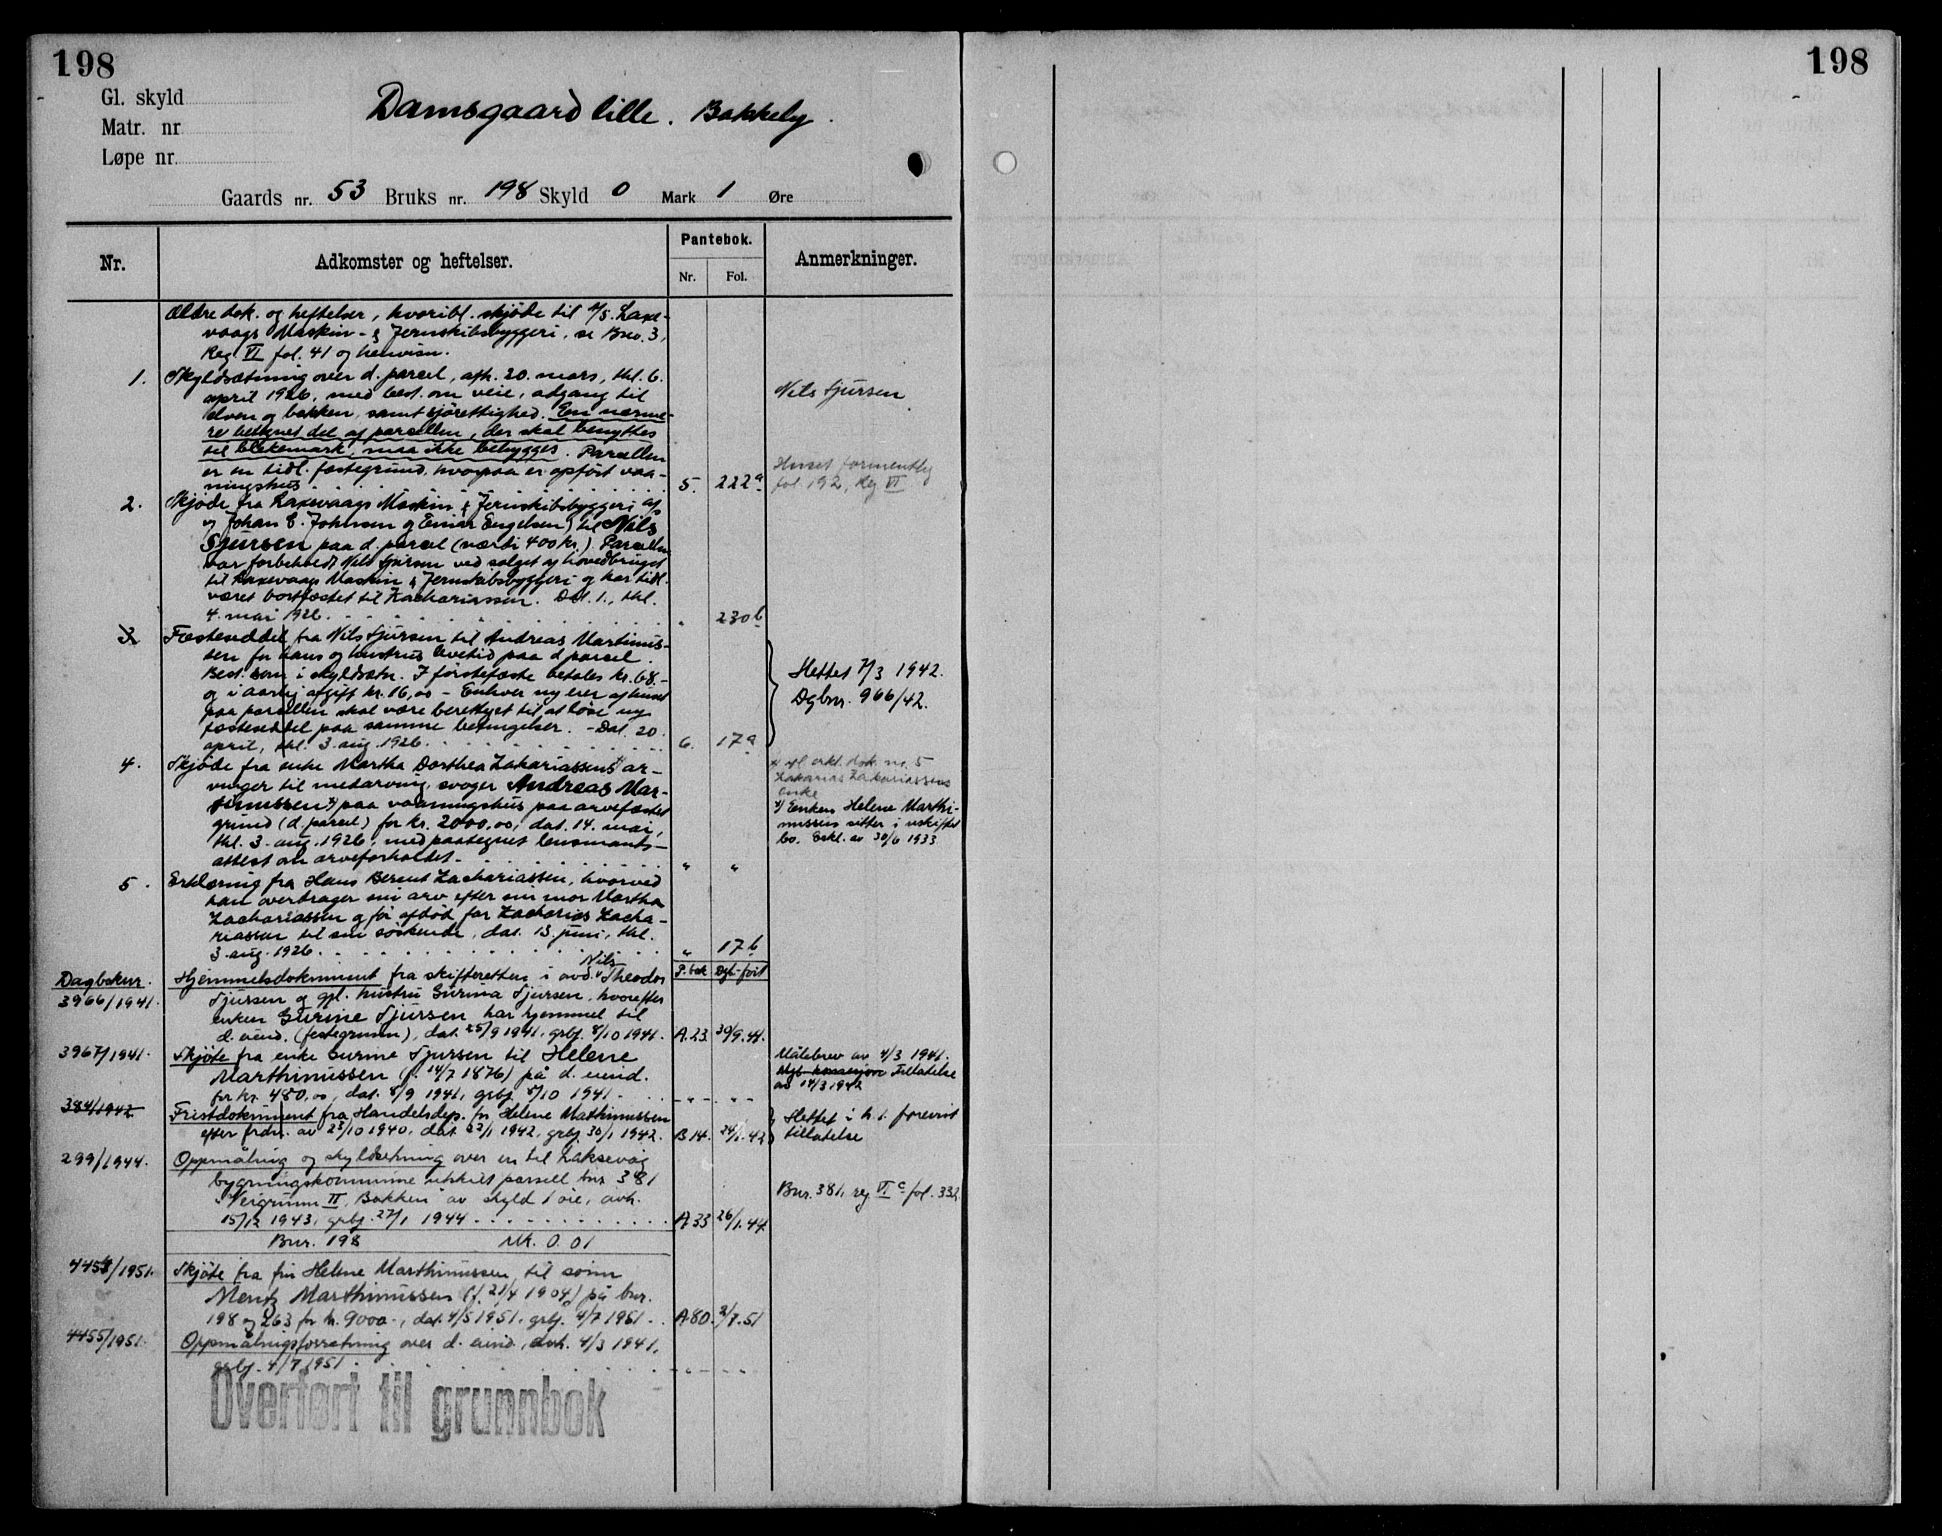 198
198
Gl. skyld
Matr. nr.
Løpe nr.
Damsgaard lille. Bakkely.
Gaards nr. 53 Bruks nr. 198 Skyld 0 Mark 1 Øre
Nr.
Adkomster og heftelser.
Pantebok.
Nr. Fol.
Anmerkninger.
Ældre dok. og heftelser, hvoribl. skjöde til A/S. Laxe-
vaags Maskin- & Jernskibsbyggeri, se Bno. 3,
Reg VI fol. 41 og henvisn.
1. Skyldsætning over d. parcel, afh. 20. mars, thl. 6.
april 1926, med best. om veie, adgang til
elven og bakken, samt sjörettighed. En nærme-
re betegnet del af parcellen, der skal benyttes
til blekemark, maa ikke bebygges. Parcellen
er en tidl. festegrund, hvorpaa er opført vaa-
ningshus 5. 222a
Nils Sjursen
Huset formentlig
fol. 192, Reg VI
2. Skjöde fra Laxevaags Maskin & Jernskibsbyggeri A/S
(v Johan C. Johnsen og Einar Engelsen) til Nils
Sjursen paa d. parcel (værdi 400 kr.) Parcellen
var forbeholdt Nils Sjursen ved salget af hovedbruget
til Laxevaags Maskin & Jernskibsbyggeri og har tidl.
været bortfæstet til Zachariassen. Dat. 1., thl.
4. mai 1926. " 230b
3. Festeseddel fra Nils Sjursen til Andreas Martinus-
sen for hans og hustrus levetid paa d. parcel.
Best. som i skyldsætn. I förstefæste betales kr. 68.-
og i aarlig afgift kr. 16,00 - Enhver ny eier af huset
paa parcellen skal være berettiget til at løse ny
festeseddel paa samme betingelser. - Dat. 20.
april, thl. 3. aug. 1926. 6. 17a
Slettet 7/3 1942.
Dgbnr. 966/42.
4. Skjöde fra enke Martha Dorthea Zakariassens x) ar-
vinger til medarving, svoger Andreas Mar-
tinussen x) paa vaaningshus paa arvefæstet
grund (d. parcel) for kr. 2000,00, dat. 14. mai,
thl. 3. aug. 1926, med paategnet lensmants-
attest om arveforholdet. " "
x ifl. erkl. dok. no. 5
Zakarias Zakariassens
enke
x) Enken Helene Marthi-
nussen sitter i uskiftet
bo. Erkl. av 30/6 1933.
5. Erklæring fra Hans Berent Zachariassen, hvorved
han overdrager sin arv efter sin mor Martha
Zachariassen og før afdöd far Zacharias Zacha-
riassen til sine söskende, dat. 13. juni, thl.
3. aug. 1926. " 17b
Dagboknr. P.bok Dgb.-ført
3966/1941. Hjemmelsdokument fra skifteretten i avd. Nils Theodor
Sjursen og gjl. hustru Gurina Sjursen, hvorefter
enken Gurine Sjursen har hjemmel til
d. eiend. (festegrunn), dat. 25/9 1941, grbf. 8/10 1941. A.23. 30/9.41.
3967/1941. Skjøte fra enke Gurine Sjursen til Helene
Marthinussen (f. 14/7 1876) på d. eiend.
for kr. 480,00, dat. 8/9 1941, grbf. 8/10 1941 - " - - " -
Målebrev av 4/3 1941.
Tillatelse
av 14/3 1942
384/1942. Fristdokument fra Handelsdep. for Helene Marthinussen
efter frdn. av 25/10 1940, dat. 22/1 1942, grbf. 30/1 1942. B 14. 24/1.42
Slettet i h. t. forevist
tillatelse
299/1944. Oppmåling og skyldsetning over en til Laksevåg
bygningskommune utskilt parsell bnr 381
"Veigrunn II, Bakken" av skyld 1 øre, avh.
15/12 1943, grbf. 27/1 1944 A 33 26/1.44.
Bnr. 381, reg VI c fol. 332.
Bnr. 198 Mk. 0.01
4454/1951. Skjøte fra fru Helene Marthinussen til sønn
Mentz Marthinussen (f. 21/4 1904) på bnr.
198 og 263 for kr. 9000.-, dat. 4/5 1951, grbf. 4/7 1951. A80. 2/7.51
4455/1951. Oppmålingsforretning over d. eiend., avh. 4/3 1941,
grbf. 4/7 1951. - " - - " -
Overført til grunnbok